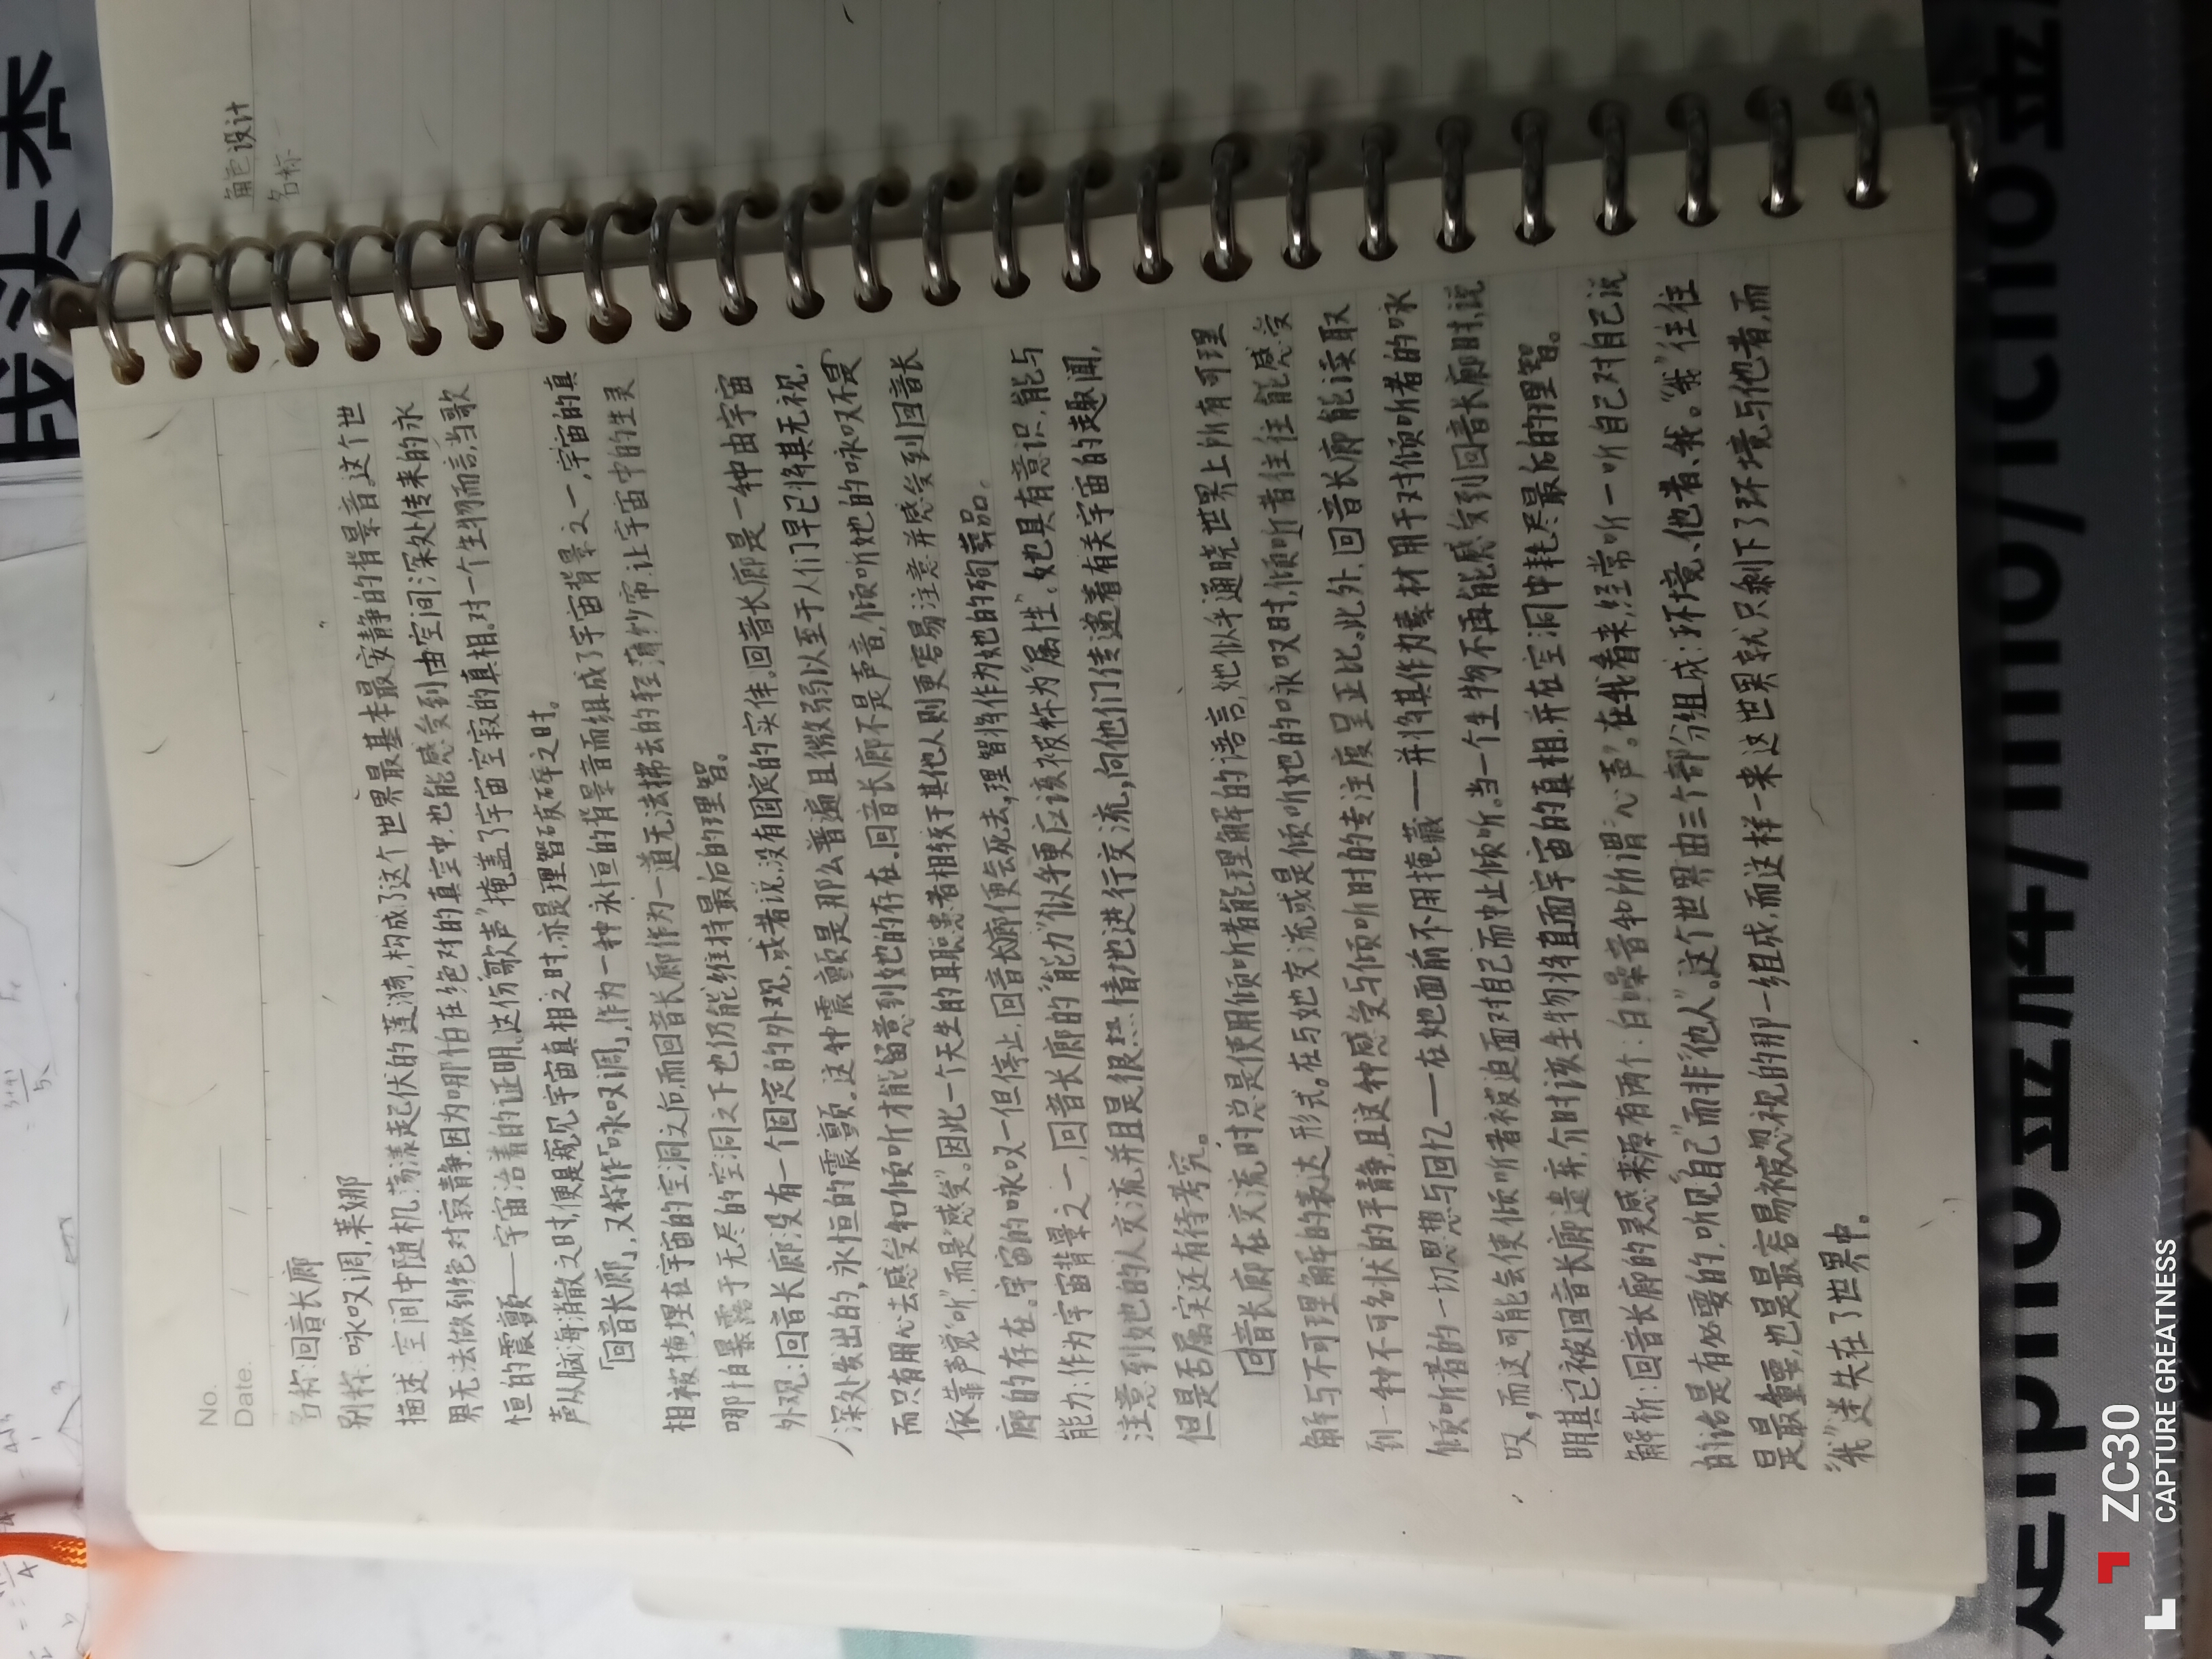 No.
Date.
名称:回音长廊
别称:咏叹调,莱娜
描述:空间中随机荡漾起伏的涟漪,构成了这个世界最基本最安静的背景音,这个世
界无法做到绝对寂静,因为哪怕在绝对的真空中,也能感受到由空间深处传来的永
恒的震颤——宇宙活着的证明。这份“歌声”掩盖了宇宙空寂的真相。对一个生物而言,当歌
声从脑海消散之时,便是窥见宇宙真相之时,亦是理智破碎之时。
「回音长廊」,又称作「咏叹调」,作为一种永恒的背景音而组成了宇宙背景之一,宇宙的真
相被掩埋在宇宙的空洞之间,而回音长廊作为一道无法拂去的轻薄纱帘,让宇宙中的生灵
哪怕暴露于无尽的空洞之下也仍能维持最后的理智。
外观:回音长廊没有一个固定的外观,或者说,没有固定的实体。回音长廊是一种由宇宙
深处发出的,永恒的震颤。这种震颤是那么普遍且微弱以至于人们早已将其无视,
而只有用心去感受和倾听才能留意到她的存在。回音长廊不是声音,倾听她的咏叹不是
依靠声觉“听”,而是“感受”。因此一个天生的耳聪患者相较于其他人则更容易注意并感受到回音长
廊的存在。宇宙的咏叹一但停止,回音长廊便会死去,理智将作为她的殉葬品。
能力:作为宇宙背景之一,回音长廊的“能力”似乎更应该被称为“属性”。她具有意识,能与
注意到她的人交流并且是很热情地进行交流,向他们传递着有关宇宙的趣闻,
但是否属实还有待考究。
回音长廊在交流时总是使用倾听者能理解的语言,她似乎通晓世界上所有可理
解与不可理解的表达形式。在与她交流或是倾听她的咏叹时,倾听者往往能感受
到一种不可名状的平静,且这种感受与倾听时的专注度呈正比。此外,回音长廊能读取
倾听者的一切思想与回忆——在她面前不用掩藏——并将其作为素材用于对倾听者的咏
叹,而这可能会使倾听者被迫面对自己而中止倾听。当一个生物不再能感受到回音长廊时,说
明其已被回音长廊遗弃,介时该生物将直面宇宙的真相,并在空洞中耗尽最后的理智。
解析:回音长廊的灵感来源有两个:白噪音和所谓“心声”。在我看来,经常听一听自己对自己说
的话是有必要的,听见“自己”而非“他人”。这个世界由三个部分组成:环境、他者、我。“我”往往
是最重要,也是最容易被忽视的那一组成,而这样一来这世界就只剩下了环境与他者,而
“我”迷失在了世界中。
角色设计
名称
ZC30
CAPTURE GREATNESS